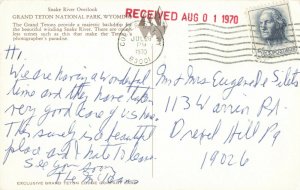 Snake River Overlook
GRAND TETON NATIONAL PARK, WYOMING
The Grand Tetons provide a majestic backdrop for
the beautiful winding Snake River. There are
scenes such as this that make the Tetons a
photographer's paradise.
RECEIVED AUG 01 1970
PM
83001
Hi,
We are having a wonderful
time and the have taken
very good care of us here.
This surely is a beautiful
place and I hate to leave.
See you soon
The
Mr & Mrs Eugene
113 Warren Rd.
Drexel Hill Pa
19026
EXCLUSIVE GRAND TETON LODGE